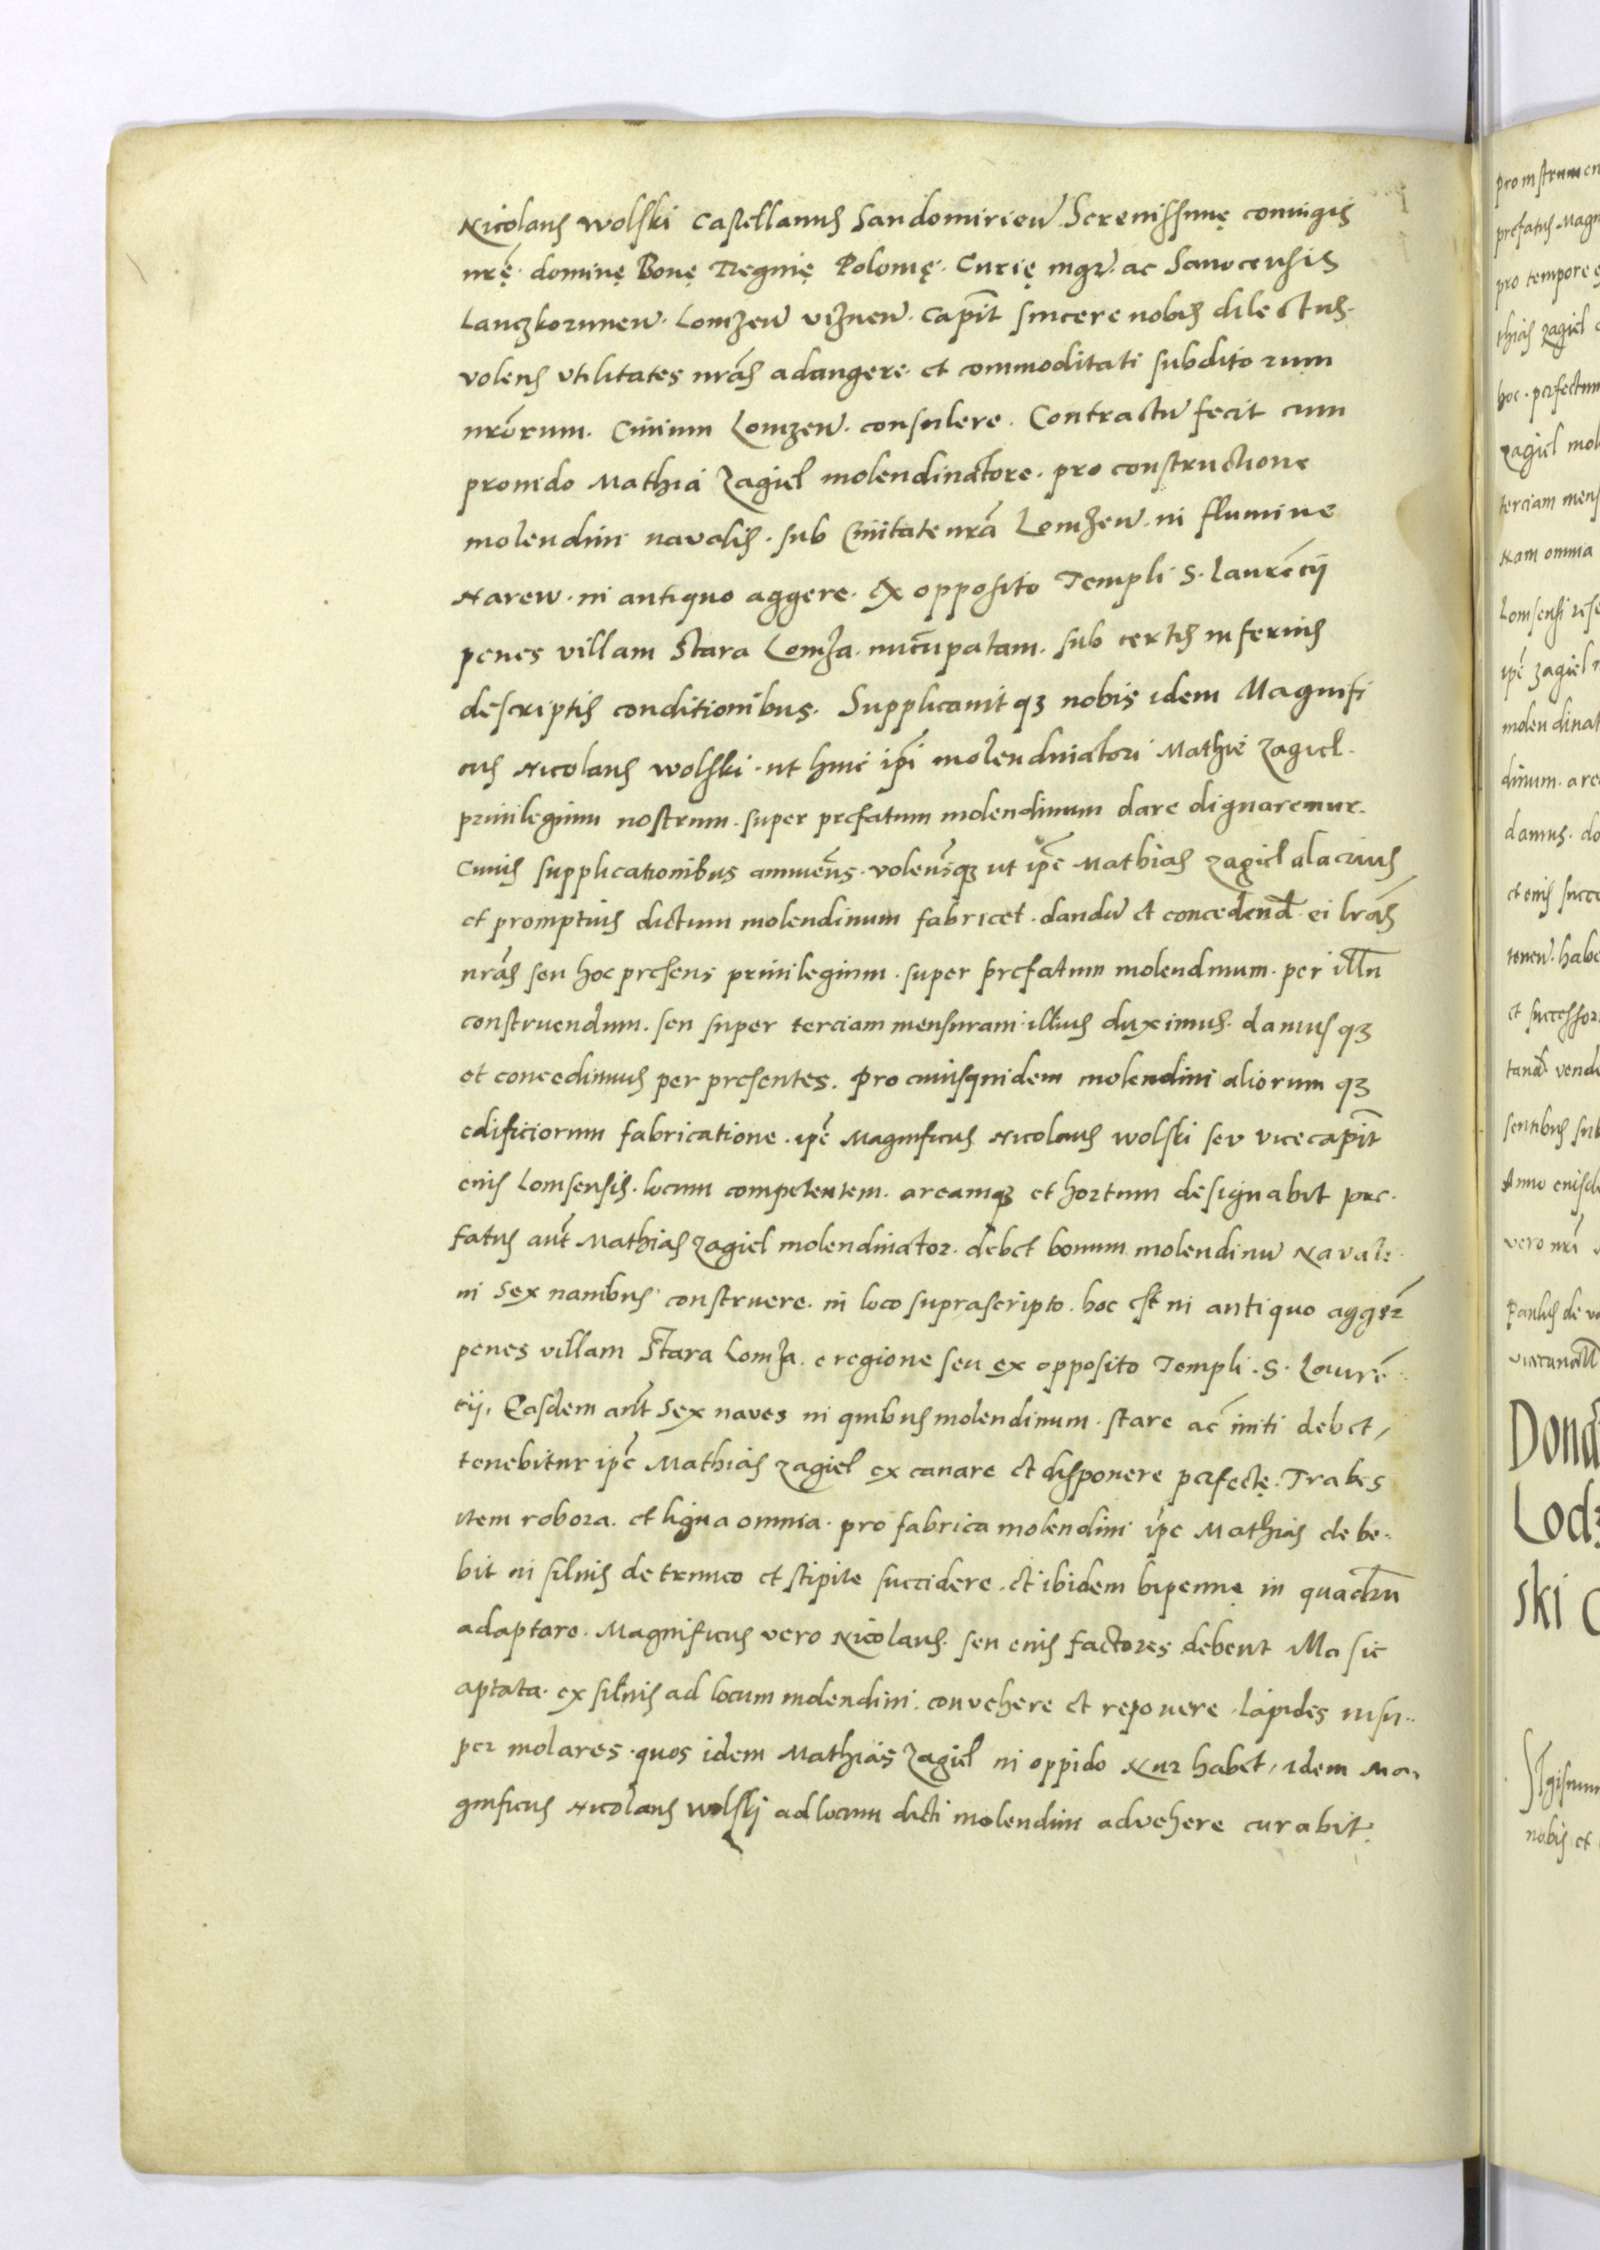 Nicolaus Wolski Castellanus Sandomirien̄. Serenissimę coniugis
nrę̄. dominę Bonę Reginę Polonię. Curię mgr̄. ac Sanocensis
Lanczkorunen̄. Lomzen̄ viznen̄. Capit̄ sincere nobis dilectus.
volens vtilitates nrās adangere. et commoditati subditorum
nrōrum. Ciuium Lomzen̄. consulere. Contractū fecit cum
prouido Mathia Zagiel molendinatore. pro constructione
molendini navalis. sub Ciuitate nrā Lomzen̄. in flumine
Narew. in antiquo aggere. ex opposito Templi S. Laurēcij
penes villam Stara Lomza. nūcupatam. sub certis inferius
descriptis conditionibus. Supplicauit qз nobis idem Magnifi
cus Nicolaus Wolski. ut huic ip̄i molendinatori Mathie Zagiel.
priuilegium nostrum. super prefatum molendinum dare dignaremur.
Cuius supplicationibus annuen̄s. volen̄sqз ut ip̄e Mathias Zagiel alacrius
et promptius dictum molendinum fabricet. dandū et concedend̄ ei lrās
nrās seu hoc presens priuilegium. super prefatum molendinum. per ill̄n
construendum. seu super terciam mensuram illius duximus. damus qз
et concedimus per presentes. Pro cuiusquidem molendini aliorum qз
edificiorum fabricatione. ip̄e Magnificus Nicolaus Wolski seu vicecapit̄
eius Lomsensis. locum competentem. areamqз et hortum designabit pre.
fatus aut̄ Mathias Zagiel molendinator. debet bonum molendinū Navale.
in sex nauibus construere. in loco suprascripto. hoc est in antiquo aggēr
penes villam Stara Lomza. e regione seu ex opposito Templi. S. Laurē
cij, Easdem aut̄ sex naves in quibus molendinum. stare ac̄ initi debet,
tenebitur ip̄e Mathias Zagiel excauare et disponere perfectę. Trabes
item robora. et ligna omnia. pro fabrica molendini ip̄e Mathias debe.
bit in siluis de trunco et stipite succidere. et ibidem bipennę in quadrū
adaptare. Magnificus vero Nicolaus. seu eius factores debent illa sic
aptata. ex siluis ad locum molendini. convehere et reponere. Lapides insu..
per molares. quos idem Mathias Zagiel in oppido Nur habet, idem Ma,
gnificus Nicolaus Wolskj ad locum dicti molendini advehere curabit.
pro instrumen
prefatus Magn
pro tempore e
thias Zagiel
hoc. perfectum
Zagiel mol
terciam mens
Nam omnia
Lomsensi rese
ip̄e Zagiel
molendinat
dinum. are
damus. do
et eius succe
tenen̄. habe
et successor
tand̄. vende
sentibus sub
Anno eiusde
vero nrī
Paulus de vo
vicecancell̄
Dona
Lodz
ski C
Sigismun
nobis et